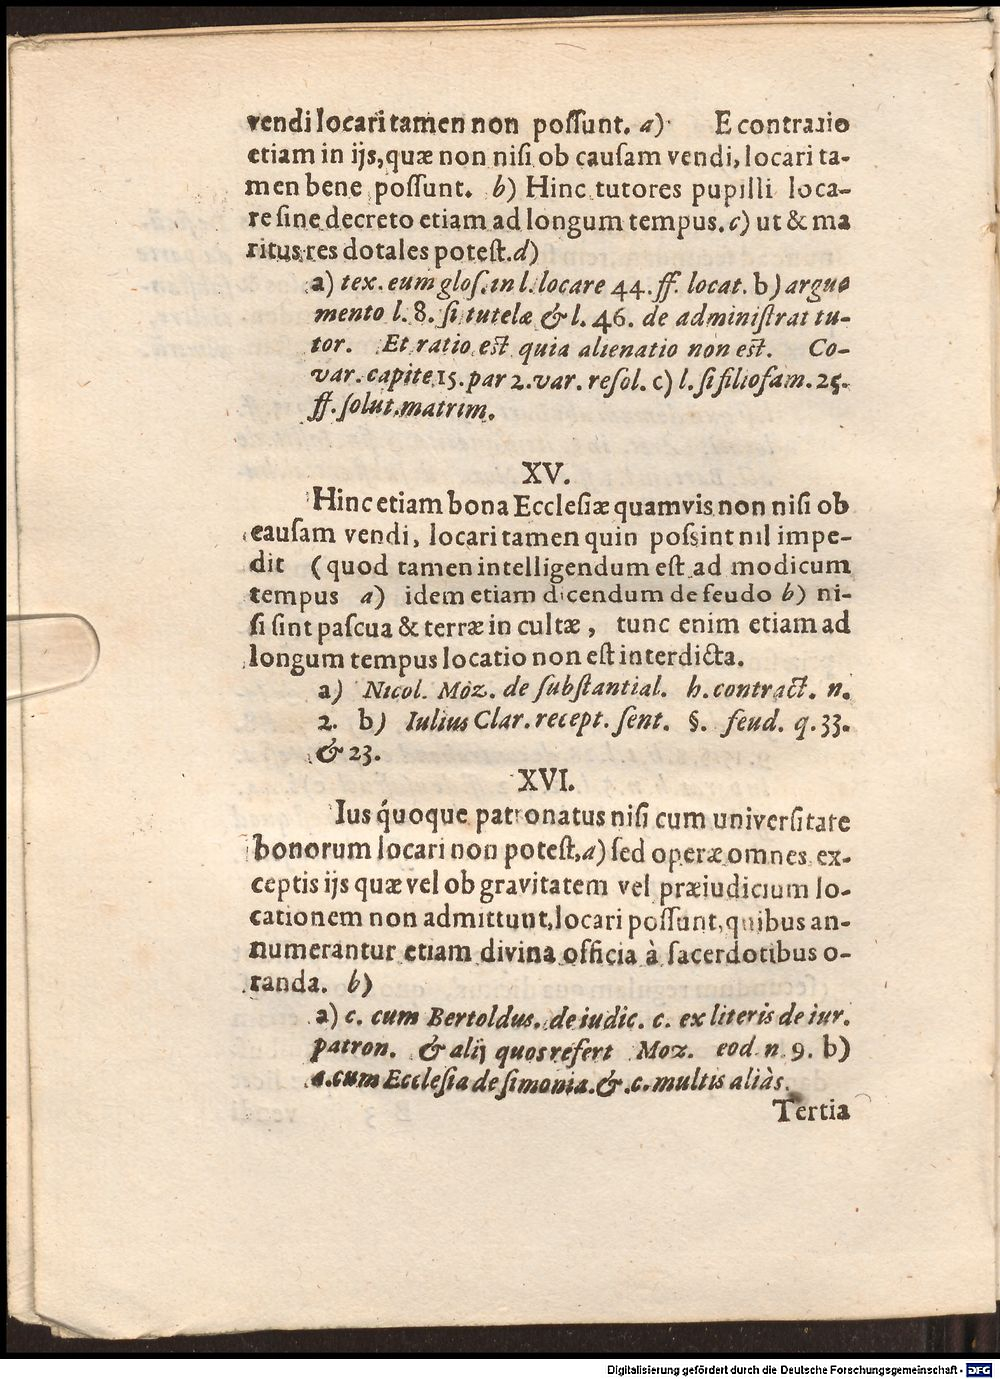 vendi locari tamen non poſſunt. a) E contrario
etiam in ijs, quæ non niſi ob cauſam vendi, locari ta-
men bene poſſunt. b) Hinc tutores pupilli loca-
re ſine decreto etiam ad longum tempus. c) ut & ma
ritus res dotales poteſt. d)
a) tex. cum gloſ. in l. locare 44. ff. locat. b) argu
mento l. 8. ſi tutelæ & l. 46. de adminiſtrat tu-
tor. Et ratio eſt quia alienatio non eſt. Co-
var. capite 15. par 2. var. reſol. c) l. ſi filiofam. 25.
ff. ſolut. matrim.
XV.
Hinc etiam bona Eccleſiæ quamvis non niſi ob
cauſam vendi, locari tamen quin poſsint nil impe-
dit (quod tamen intelligendum eſt ad modicum
tempus a) idem etiam dicendum de feudo b) ni-
ſi ſint paſcua & terræ in cultæ, tunc enim etiam ad
longum tempus locatio non eſt interdicta.
a) Nicol. Moz. de ſubſtantial. h. contract. n.
2. b) Iulius Clar. recept. ſent. §. feud. q. 33.
& 23.
XVI.
Ius quoque patronatus niſi cum univerſitate
bonorum locari non poteſt, a) ſed operæ omnes ex-
ceptis ijs quæ vel ob gravitatem vel præiudicium lo-
cationem non admittunt, locari poſſunt, quibus an-
numerantur etiam divina officia à ſacerdotibus o-
randa. b)
a) c. cum Bertoldus. de iudic. c. ex literis de iur.
patron. & alij quos refert Moz. eod. n 9. b)
a. cum Eccleſia de ſimonia. & c. multis aliàs.
Tertia
Digitalisierung gefördert durch die Deutsche Forschungsgemeinschaft - DFG